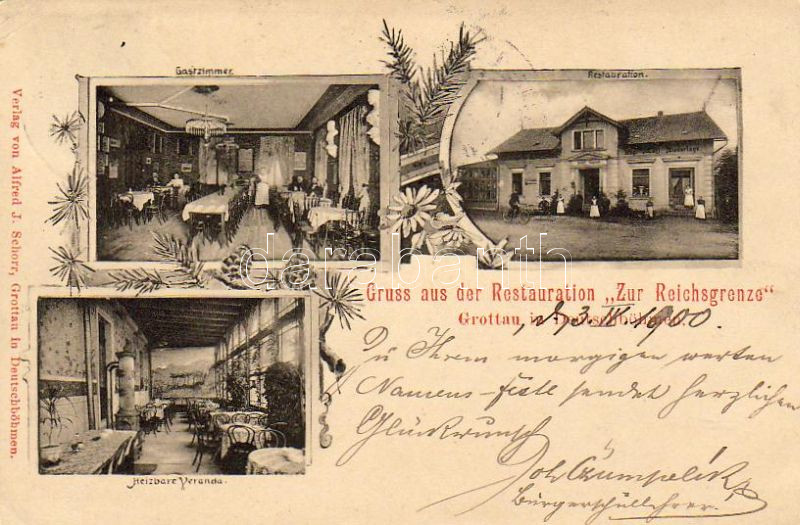 Gastzimmer.
Restauration.
Verlag von Alfred J. Schorr, Grottau in Deutschböhmen.
darabanth
Gruss aus der Restauration „Zur Reichsgrenze"
Grottau, in Deutschböhmen.
1900.
Zu Ihrem morgigen werten
Namens-feste sendet herzlichen
Glückwunsch
Bürgerschullehrer.
Heizbare Veranda.